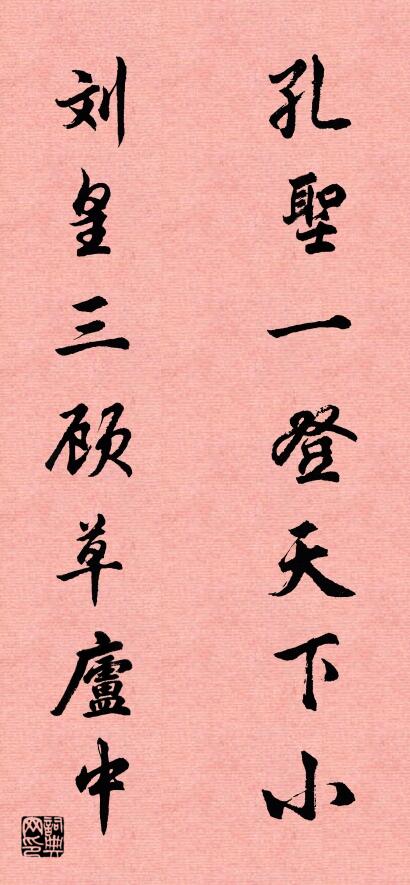 孔聖一登天下小
刘皇三顾草廬中
詞典网印